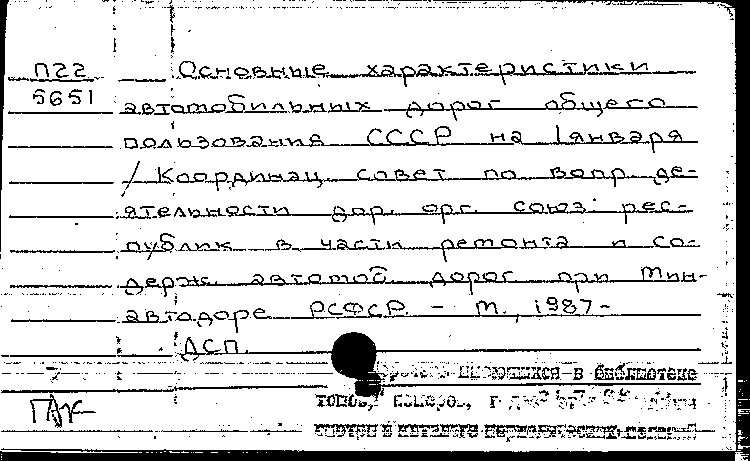 П22
5651
Основные характеристики
автомобильных дорог общего
пользования СССР на 1 января
/ Координац. совет по вопр. де-
ятельности дор. орг. союз. рес-
публик в части ремонта и со-
держ. автомоб. дорог при Мин-
автодоре РСФСР. – М., 1987-
ДСП.
имеющихся в библиотеке
томов, номеров,
смотри в каталоге периодических изданий